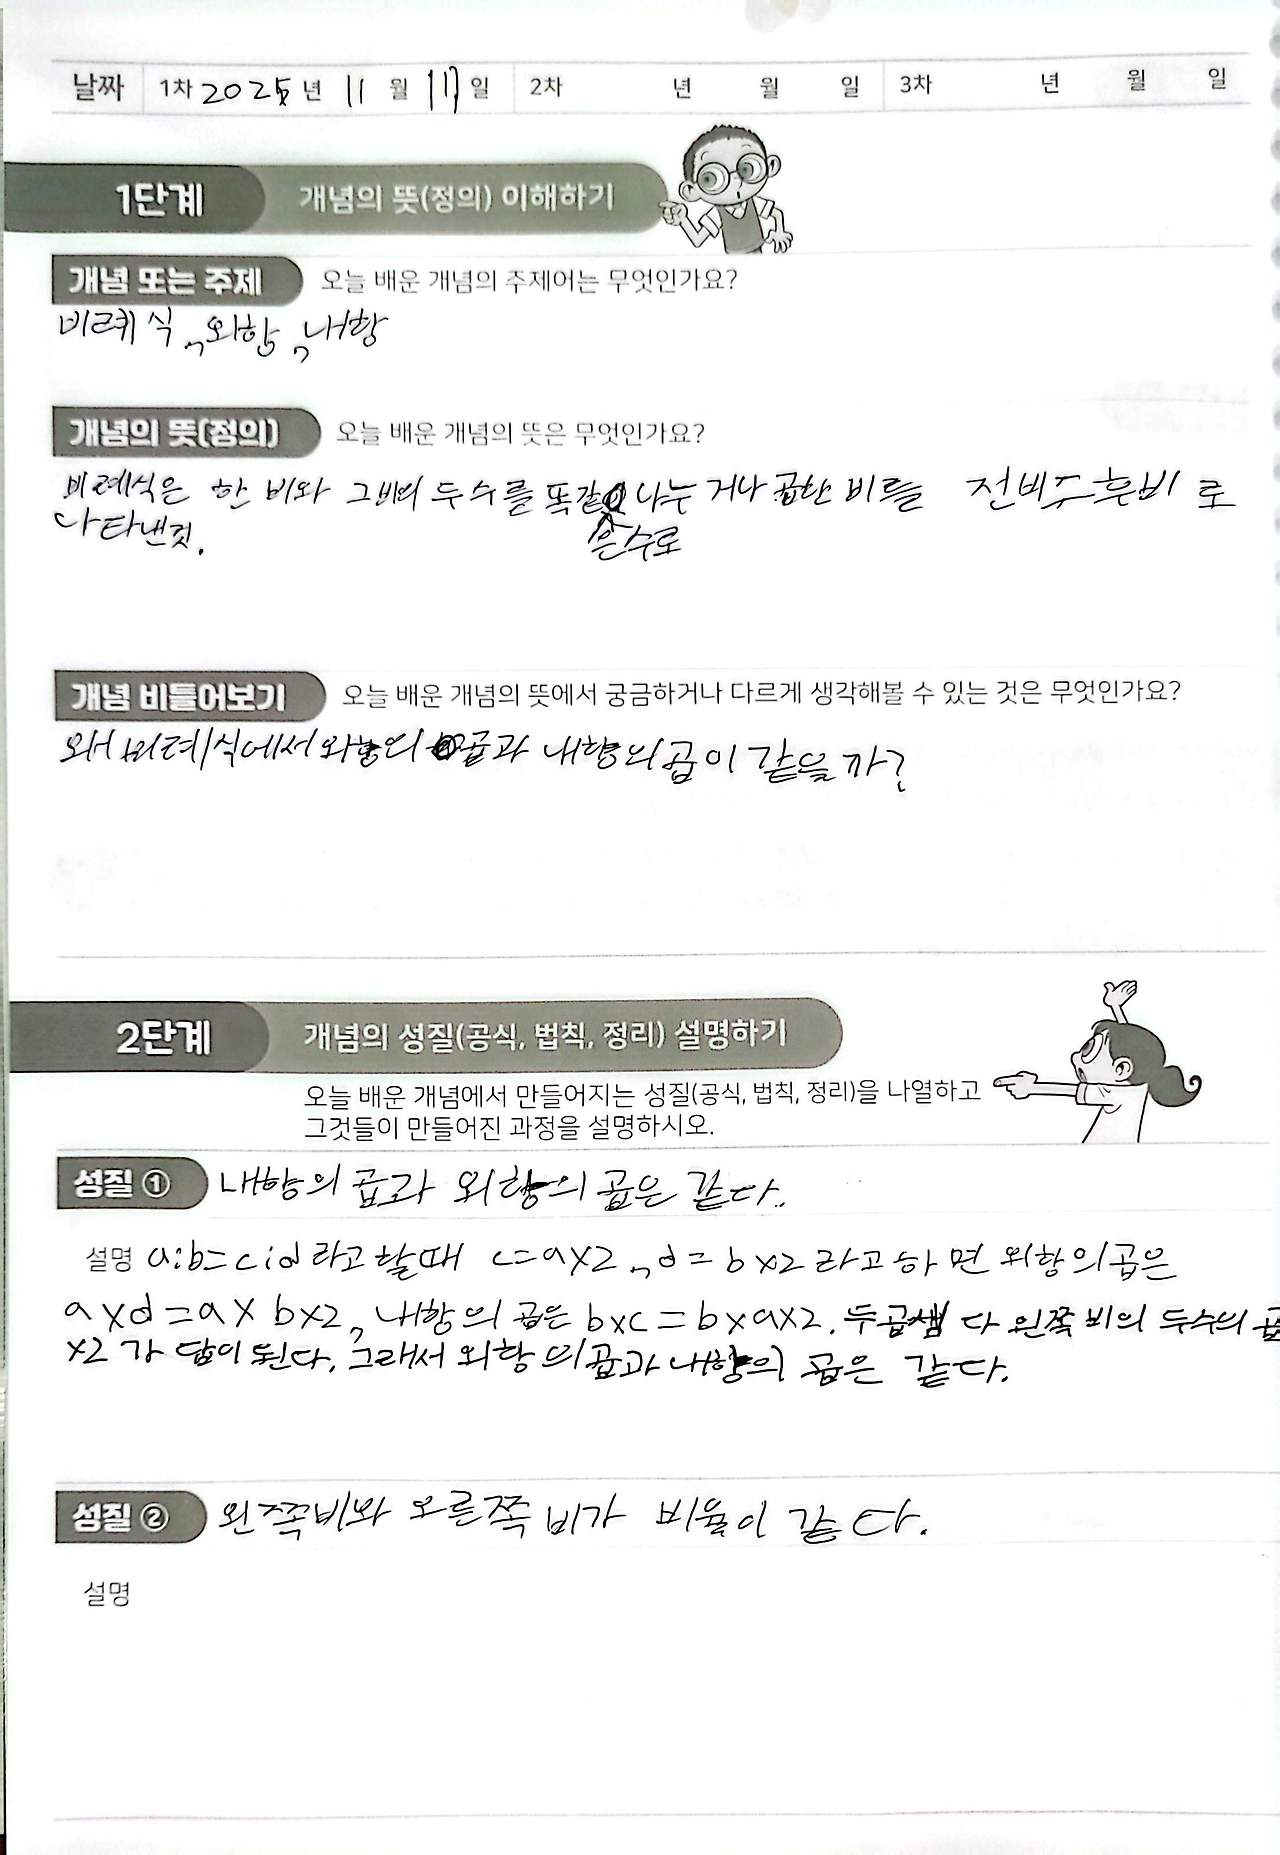 날짜 1차 2025년 11월 17일 2차 년 월 일 3차 년 월 일
1단계 개념의 뜻(정의) 이해하기
개념 또는 주제 오늘 배운 개념의 주제어는 무엇인가요?
비례식, 외항, 내항
개념의 뜻(정의) 오늘 배운 개념의 뜻은 무엇인가요?
비례식은 한 비와 그 비의 두 수를 똑같 나누거나 곱한 비를 로
은 수로
나타낸 것.
개념 비틀어보기 오늘 배운 개념의 뜻에서 궁금하거나 다르게 생각해볼 수 있는 것은 무엇인가요?
왜 비례식에서 외항의 곱과 내항의 곱이 같을까?
2단계 개념의 성질(공식, 법칙, 정리) 설명하기
오늘 배운 개념에서 만들어지는 성질(공식, 법칙, 정리)을 나열하고
그것들이 만들어진 과정을 설명하시오.
성질 ① 내항의 곱과 외항의 곱은 같다.
설명 a:b=c:d 라고 할때 c=a×2, d=b×2 라고 하면 외항의 곱은
a×d=a×b×2, 내항의 곱은 b×c=b×a×2. 두 곱셈 다 왼쪽 비의 두 수의 곱
×2가 답이 된다. 그래서 외항의 곱과 내항의 곱은 같다.
성질 ② 왼쪽 비와 오른쪽 비가 비율이 같다.
설명